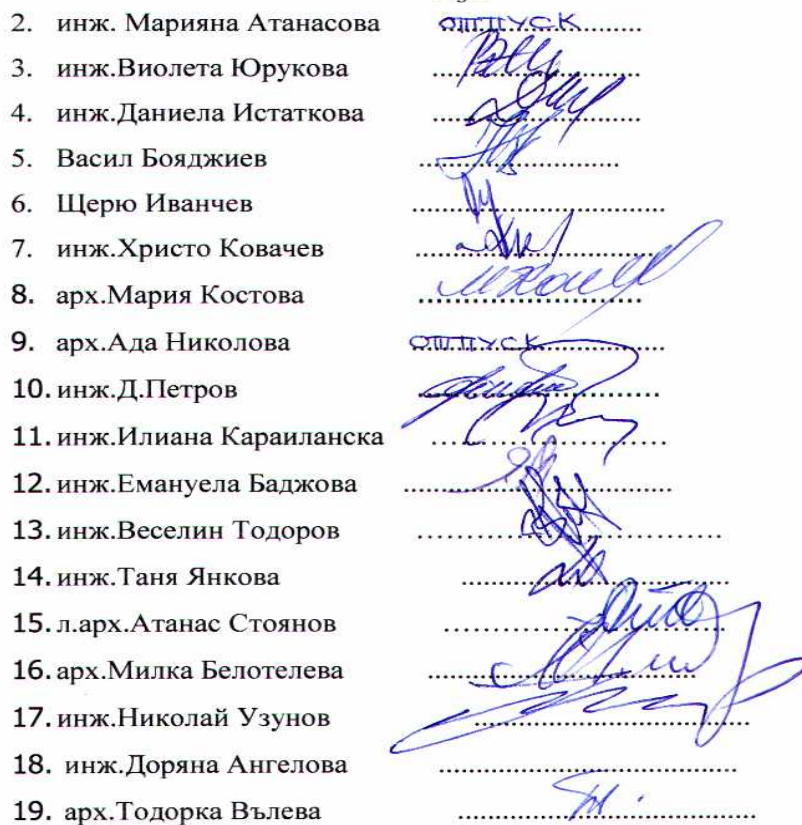 2. инж. Марияна Атанасова отпуск
3. инж.Виолета Юрукова
4. инж.Даниела Истаткова
5. Васил Бояджиев
6. Щерю Иванчев
7. инж.Христо Ковачев
8. арх.Мария Костова
9. арх.Ада Николова отпуск
10. инж.Д.Петров
11. инж.Илиана Караиланска
12. инж.Емануела Баджова
13. инж.Веселин Тодоров
14. инж.Таня Янкова
15. л.арх.Атанас Стоянов
16. арх.Милка Белотелева
17. инж.Николай Узунов
18. инж.Доряна Ангелова
19. арх.Тодорка Вълева